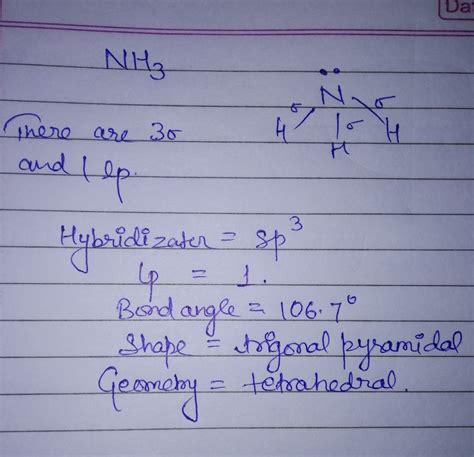 Da
NH3
••
N
σ σ
H σ H
H
There are 3σ
and 1 lp.
Hybridizaten = sp³
lp = 1.
Bond angle = 106.7°
Shape = trigonal pyramidal
Geometry = tetrahedral.